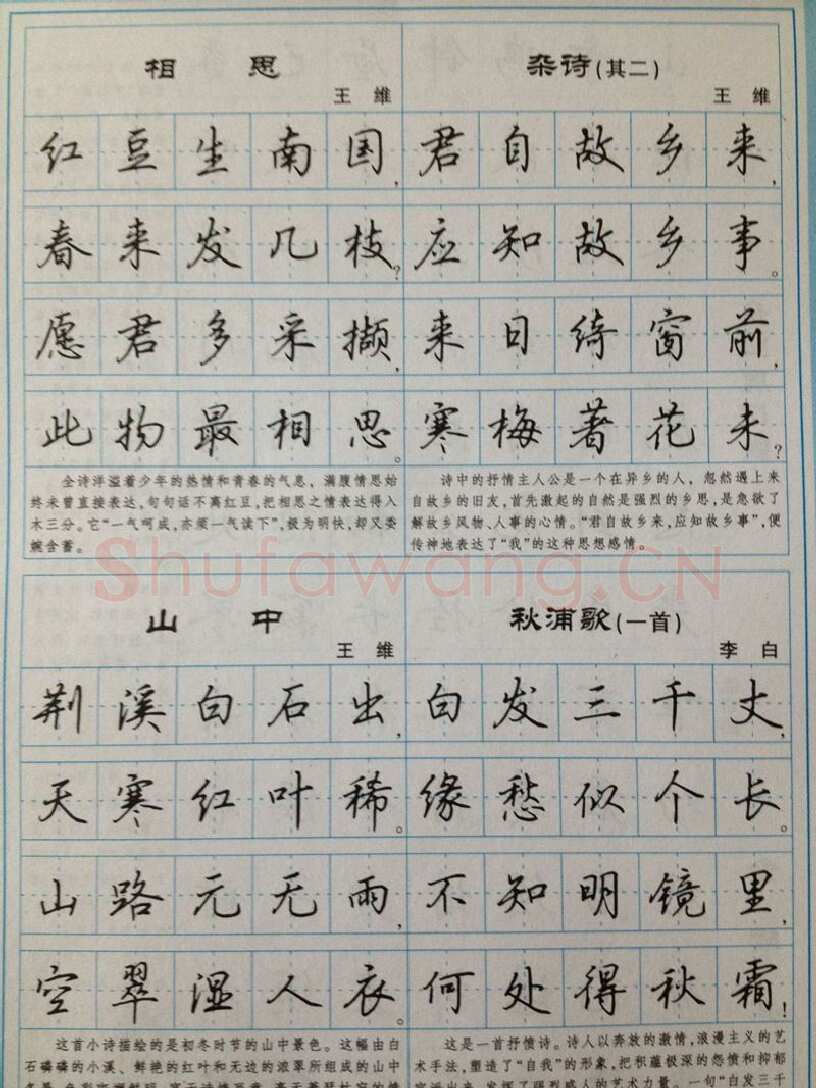 相思
王维
红豆生南国,
春来发几枝?
愿君多采撷,
此物最相思。
全诗洋溢着少年的热情和青春的气息,满腹情思始
终未曾直接表达,句句话不离红豆,把相思之情表达得入
木三分。它“一气呵成,亦须一气读下”,极为明快,却又委
婉含蓄。
杂诗(其二)
王维
君自故乡来,
应知故乡事。
来日绮窗前,
寒梅著花未?
诗中的抒情主人公是一个在异乡的人,忽然遇上来
自故乡的旧友,首先激起的自然是强烈的乡思,是急欲了
解故乡风物、人事的心情。“君自故乡来,应知故乡事”,便
传神地表达了“我”的这种思想感情。
Shufawang.CN
山中
王维
荆溪白石出,
天寒红叶稀。
山路元无雨,
空翠湿人衣。
这首小诗描绘的是初冬时节的山中景色。这幅由白
石磷磷的小溪、鲜艳的红叶和无边的浓翠所组成的山中
秋浦歌(一首)
李白
白发三千丈,
缘愁似个长。
不知明镜里,
何处得秋霜!
这是一首抒愤诗。诗人以奔放的激情,浪漫主义的艺
术手法,塑造了“自我”的形象,把积蕴极深的怨愤和抑郁